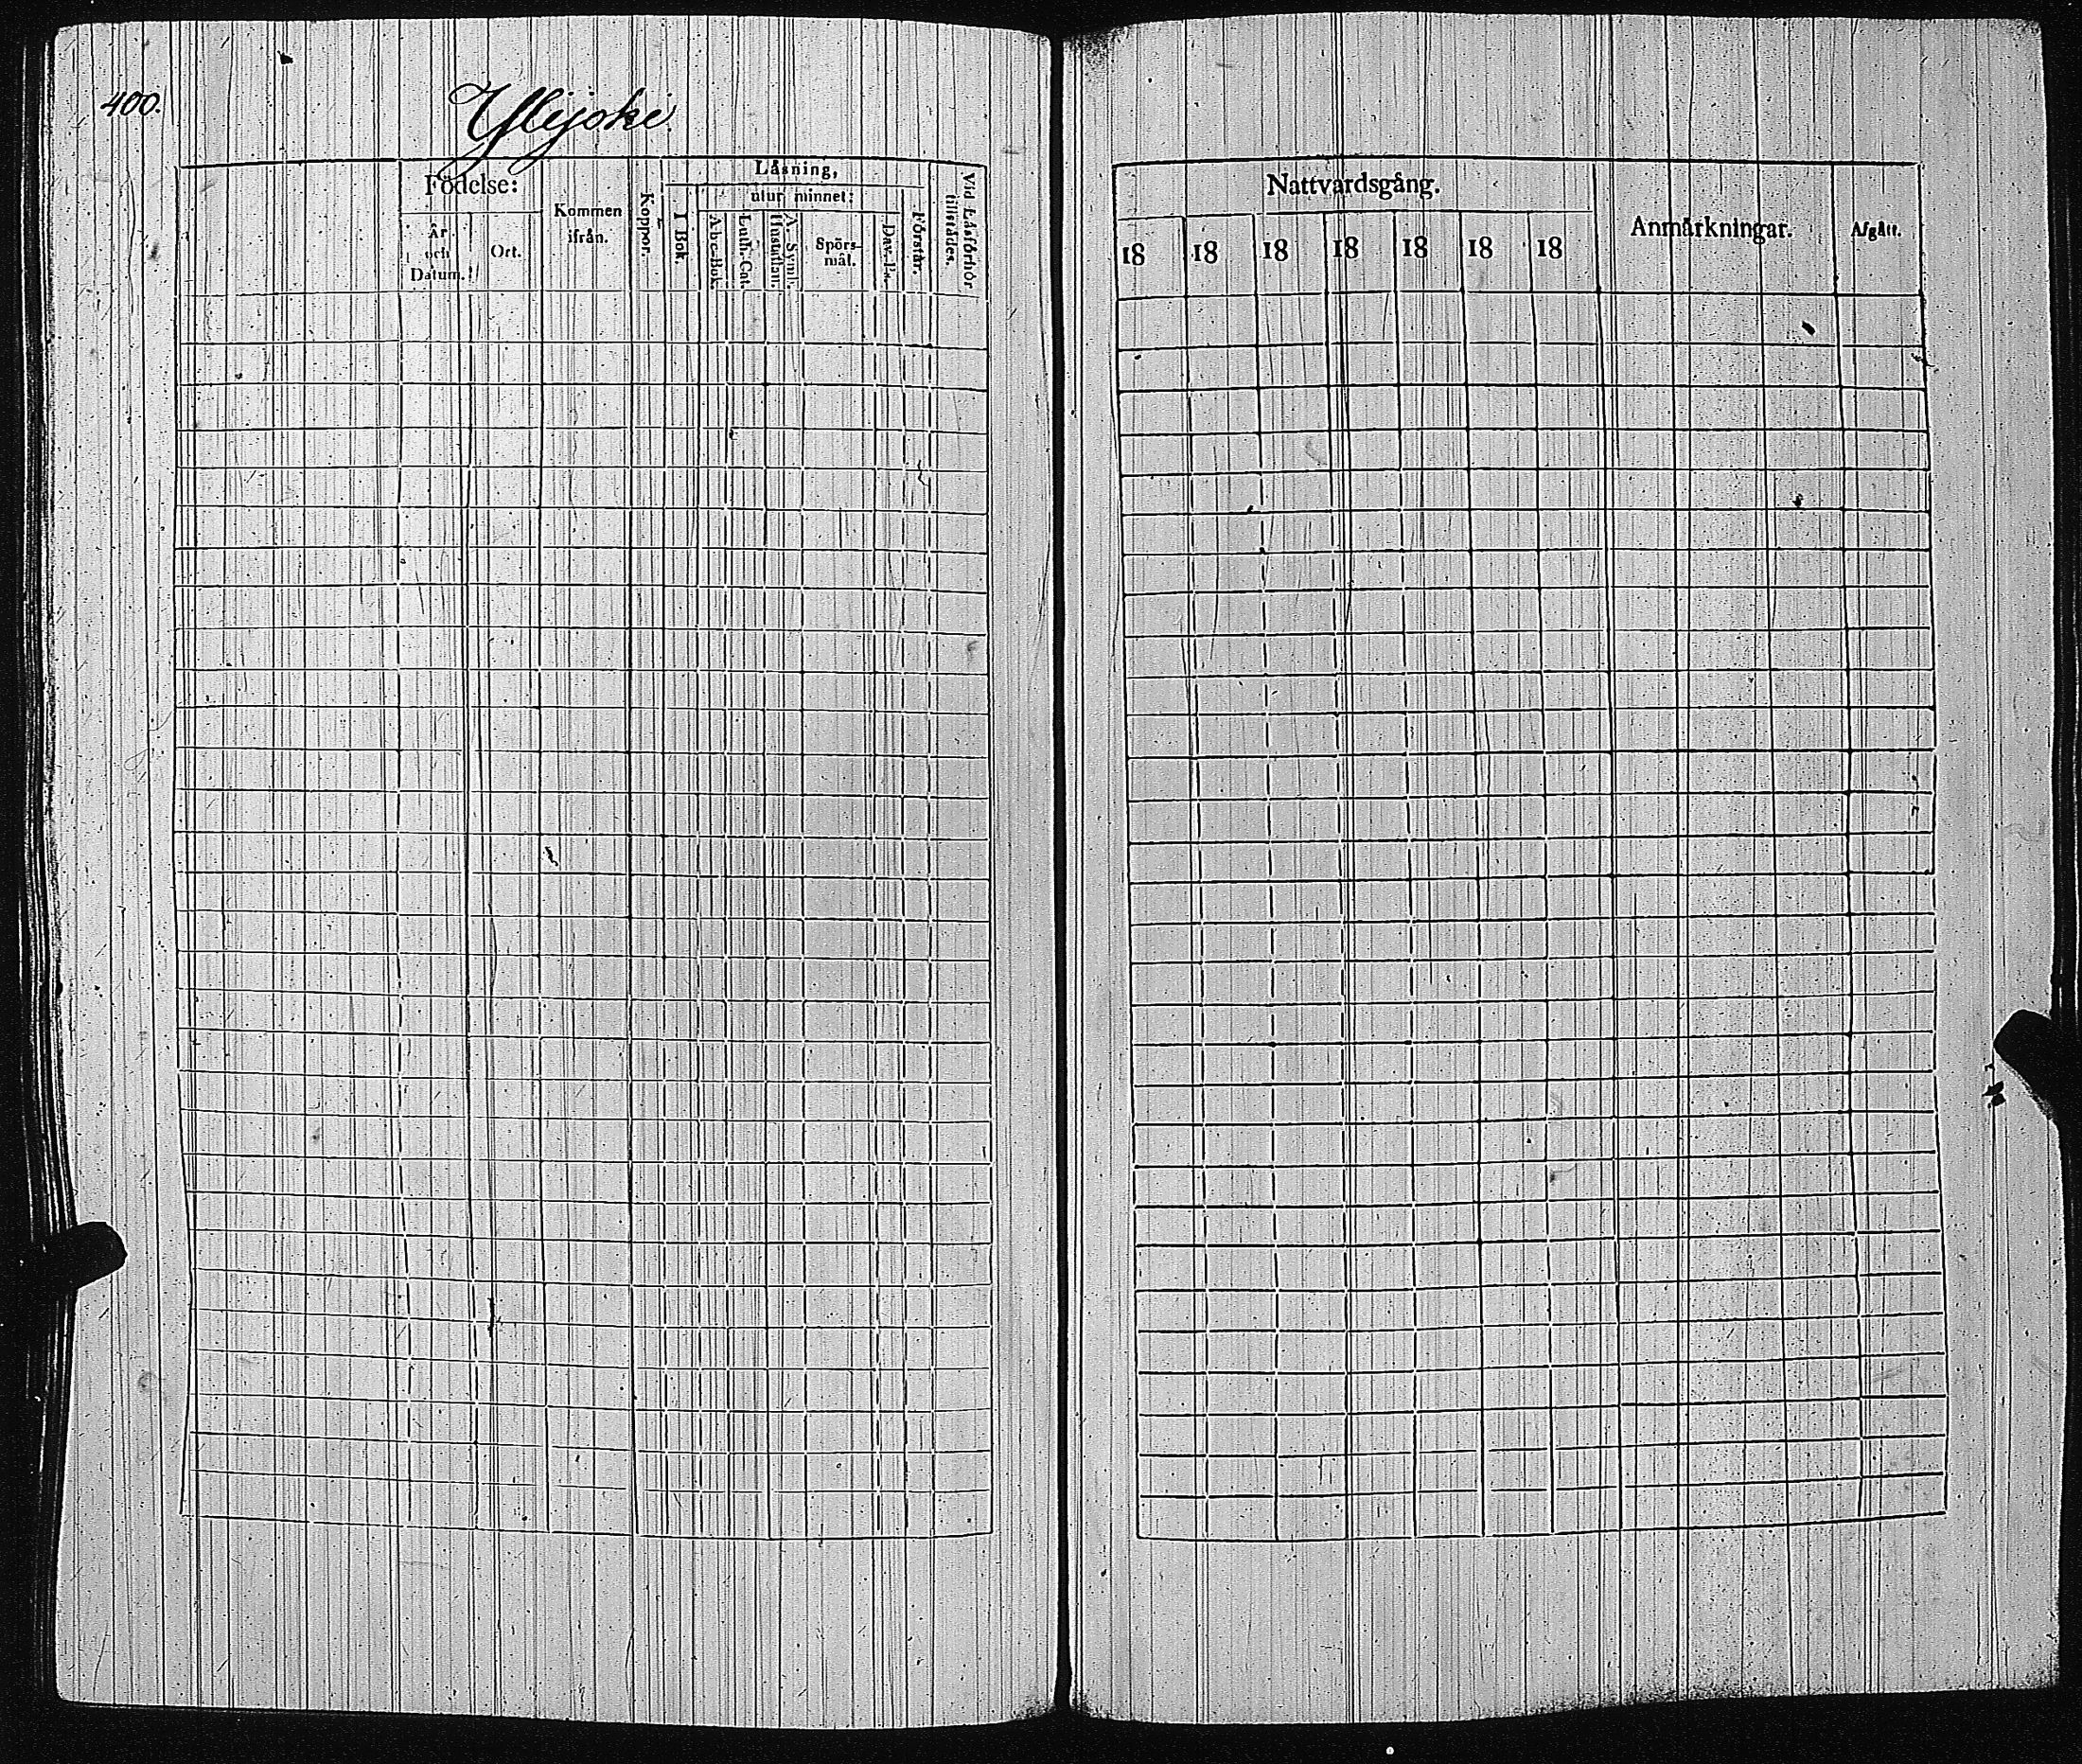 400.
Ylijoki
Födelse:
År och Datum.
Ort.
Kommen ifrån.
Koppor.
Läsning,
I Bok.
utur minnet:
Abc-Bok.
Luth. Cat.
Hustaflan.
A. Symb.
Spörs-
mål.
Dav. Ps.
Förstår.
Vid Läsförhör
tillstädes.
Nattvardsgång.
18 18 18 18 18 18 18
Anmärkningar.
Afgått.